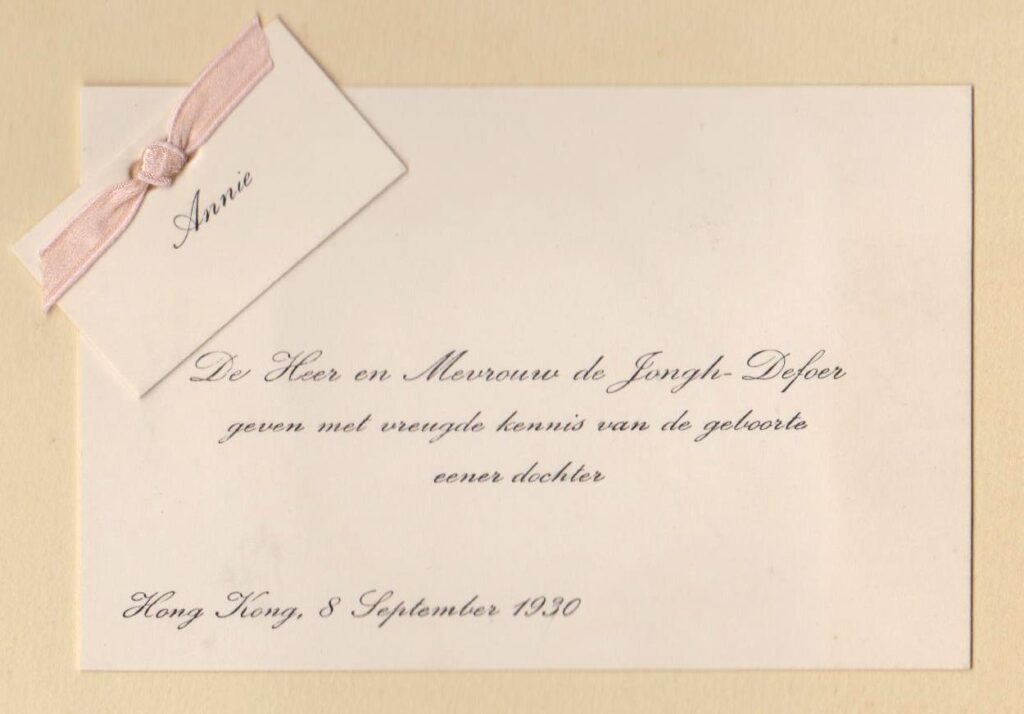 Annie
De Heer en Mevrouw de Jongh-Defoer
geven met vreugde kennis van de geboorte
eener dochter
Hong Kong, 8 September 1930